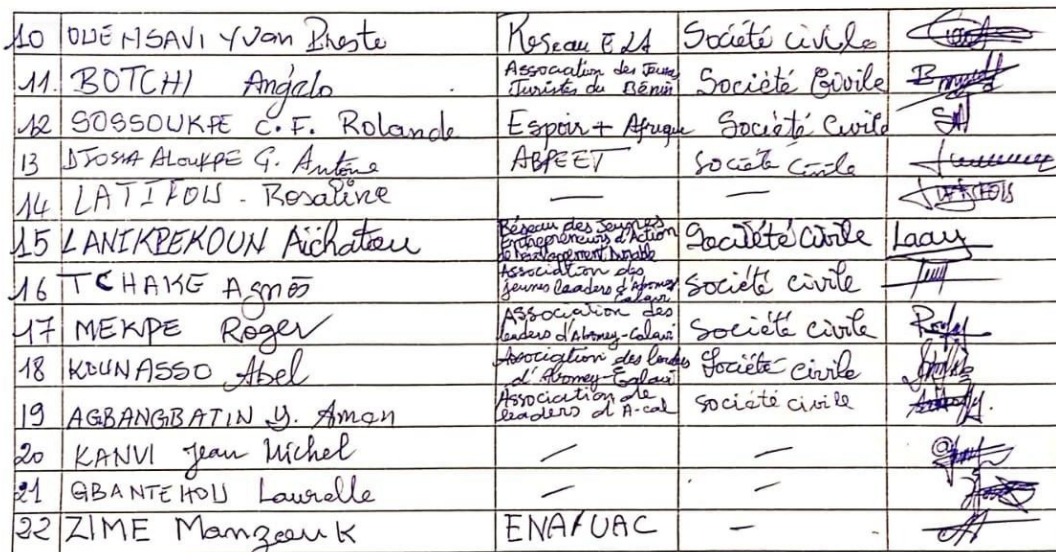 10 OUENSAVI Yvon Preste Reseau E LA Société civile
11. BOTCHI Angelo Association des Jeunes Juristes du Bénin Société Civile
12 SOSSOUKPE C. F. Rolande Espoir + Afrique Société Civile
13 DJOSSA ALOUKPE G. Antoine ABPEET Société Civile
14 LATIFOU - Rosaline — —
15 LANIKPEKOUN Aïchatou Réseau des Jeunes Entrepreneurs d'Action de Développement Durable Société Civile
16 TCHAKE Agnès Association des jeunes leaders d'Abomey Calavi Société civile
17 MEKPE Roger Association des leaders d'Abomey-Calavi Société civile
18 KOUNASSO Abel Association des leaders d'Abomey-Calavi Société civile
19 AGBANGBATIN Y. Aman Association de leaders d'A-cal société civile
20 KANVI Jean Michel — —
21 GBANTEHOU Laurelle — —
22 ZIME Manzouk ENA/UAC —